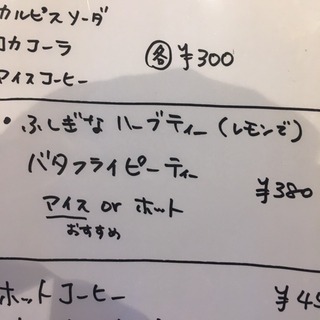 カルピスソーダ
コカコーラ
アイスコーヒー
各 ¥300
・ふしぎな ハーブティー(レモンで)
バタフライピーティー
¥380
アイス or ホット
おすすめ
ホットコーヒー